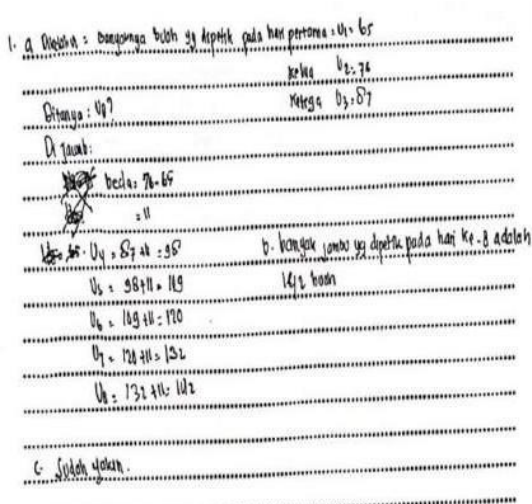 1. a Diketahui : banyaknya buah yg dipetik pada hari pertama = U1 = 65
kedua U2 = 76
Ketiga U3 = 87
Ditanya : U8?
Di jawab:
beda = 76-65
= 11
U4 = 87+11 = 98
U5 = 98+11 = 109
U6 = 109+11 = 120
U7 = 120+11 = 132
U8 = 132+11 = 142
b. banyak jambu yg dipetik pada hari ke-8 adalah
142 buah
c. Sudah yakin.